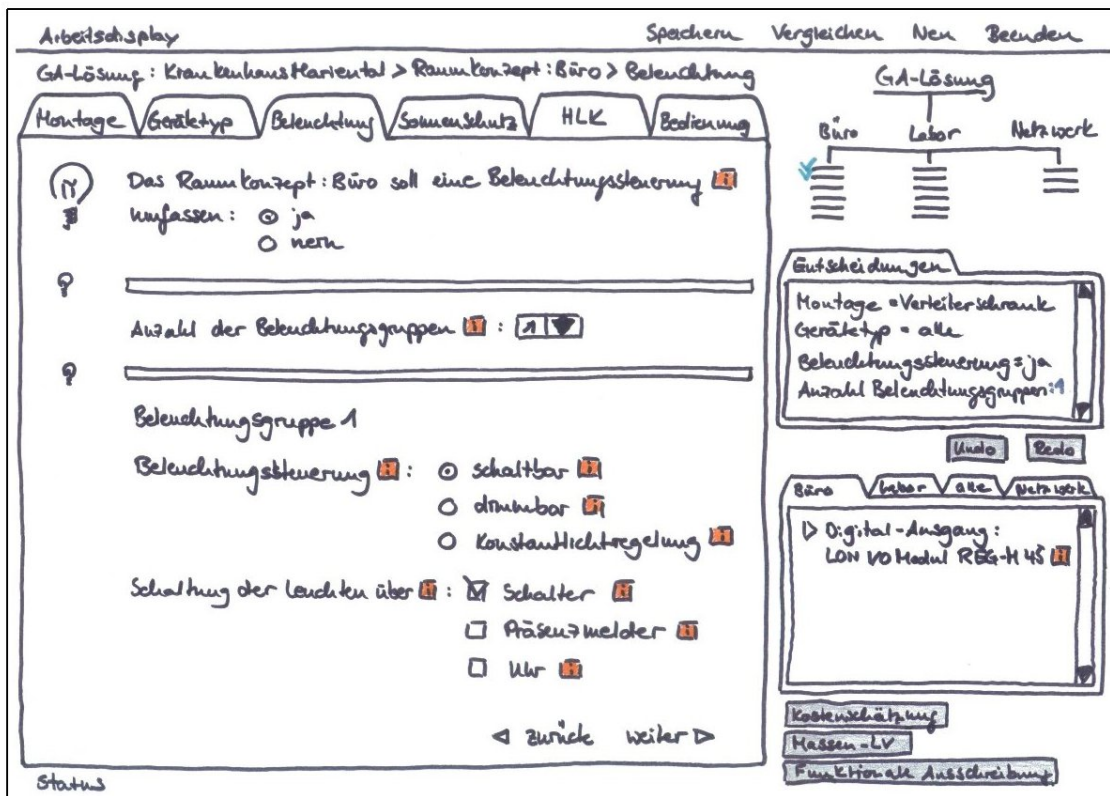 Arbeitsdisplay
Speichern Vergleichen Neu Beenden
GA-Lösung: Krankenhaus Mariental > Raumkonzept: Büro > Beleuchtung
Montage Gerätetyp Beleuchtung Sonnenschutz HLK Bedienung
Das Raumkonzept: Büro soll eine Beleuchtungssteuerung i
umfassen: ja
nein
Anzahl der Beleuchtungsgruppen i : 1
Beleuchtungsgruppe 1
Beleuchtungssteuerung i : schaltbar i
dimmbar i
Konstantlichtregelung i
Schaltung der Leuchten über i : Schalter i
Präsenzmelder i
Uhr i
zurück weiter
Status
GA-Lösung
Büro Labor Netzwerk
Entscheidungen
Montage = Verteilerschrank
Gerätetyp = alle
Beleuchtungssteuerung = ja
Anzahl Beleuchtungsgruppen: 1
Undo Redo
Büro Labor alle Netzwerk
Digital-Ausgang:
LON I/O Modul REG-M 4S i
Kostenschätzung
Massen-LV
Funktionale Ausschreibung